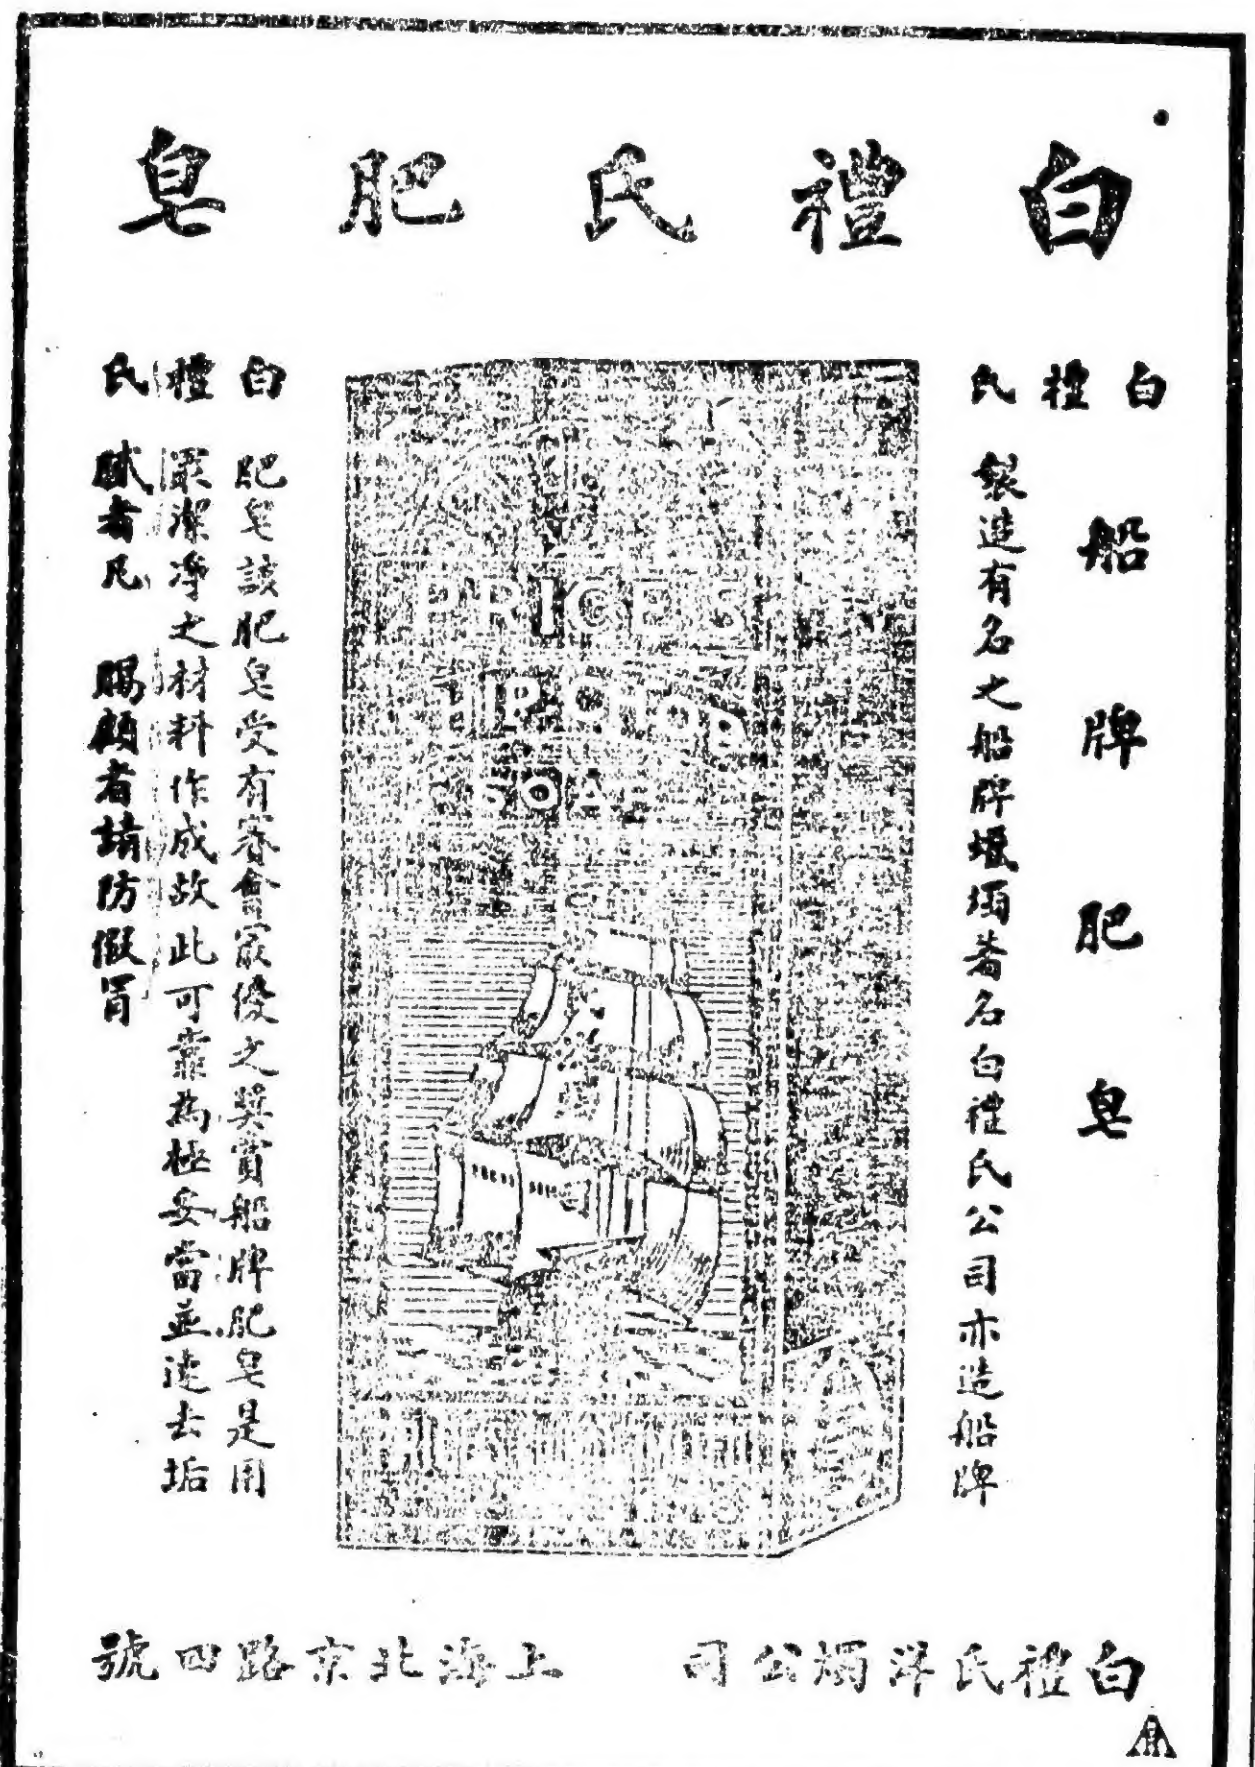 白禮氏肥皂
白禮氏
船牌肥皂
製造有名之船牌蠟燭著名白禮氏公司亦造船牌
PRICE'S
SOAP
白禮氏
肥皂該肥皂受有賽會最優之獎賞船牌肥皂是用
潔淨之材料作成故此可靠為極妥當並速去垢
膩者凡 賜顧者請防假冒
白禮氏洋燭公司 上海北京路四號